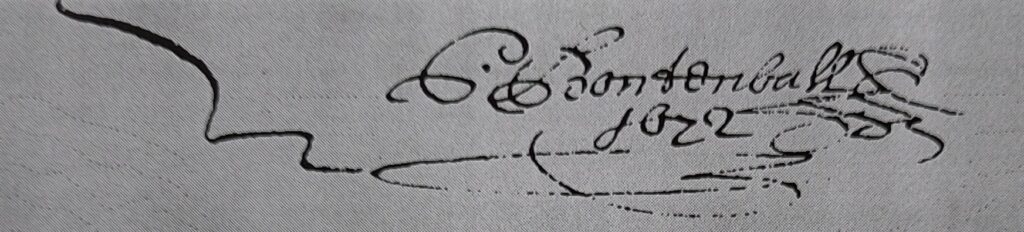 G. Grontenball
1672